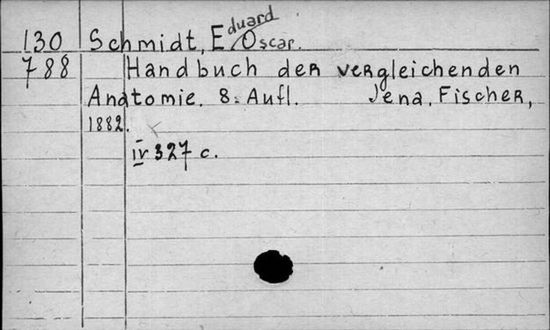 130 Schmidt, Eduard Oscar.
788 Handbuch der vergleichenden
Anatomie. 8. Aufl. Jena, Fischer,
1882.
IV 327 c.